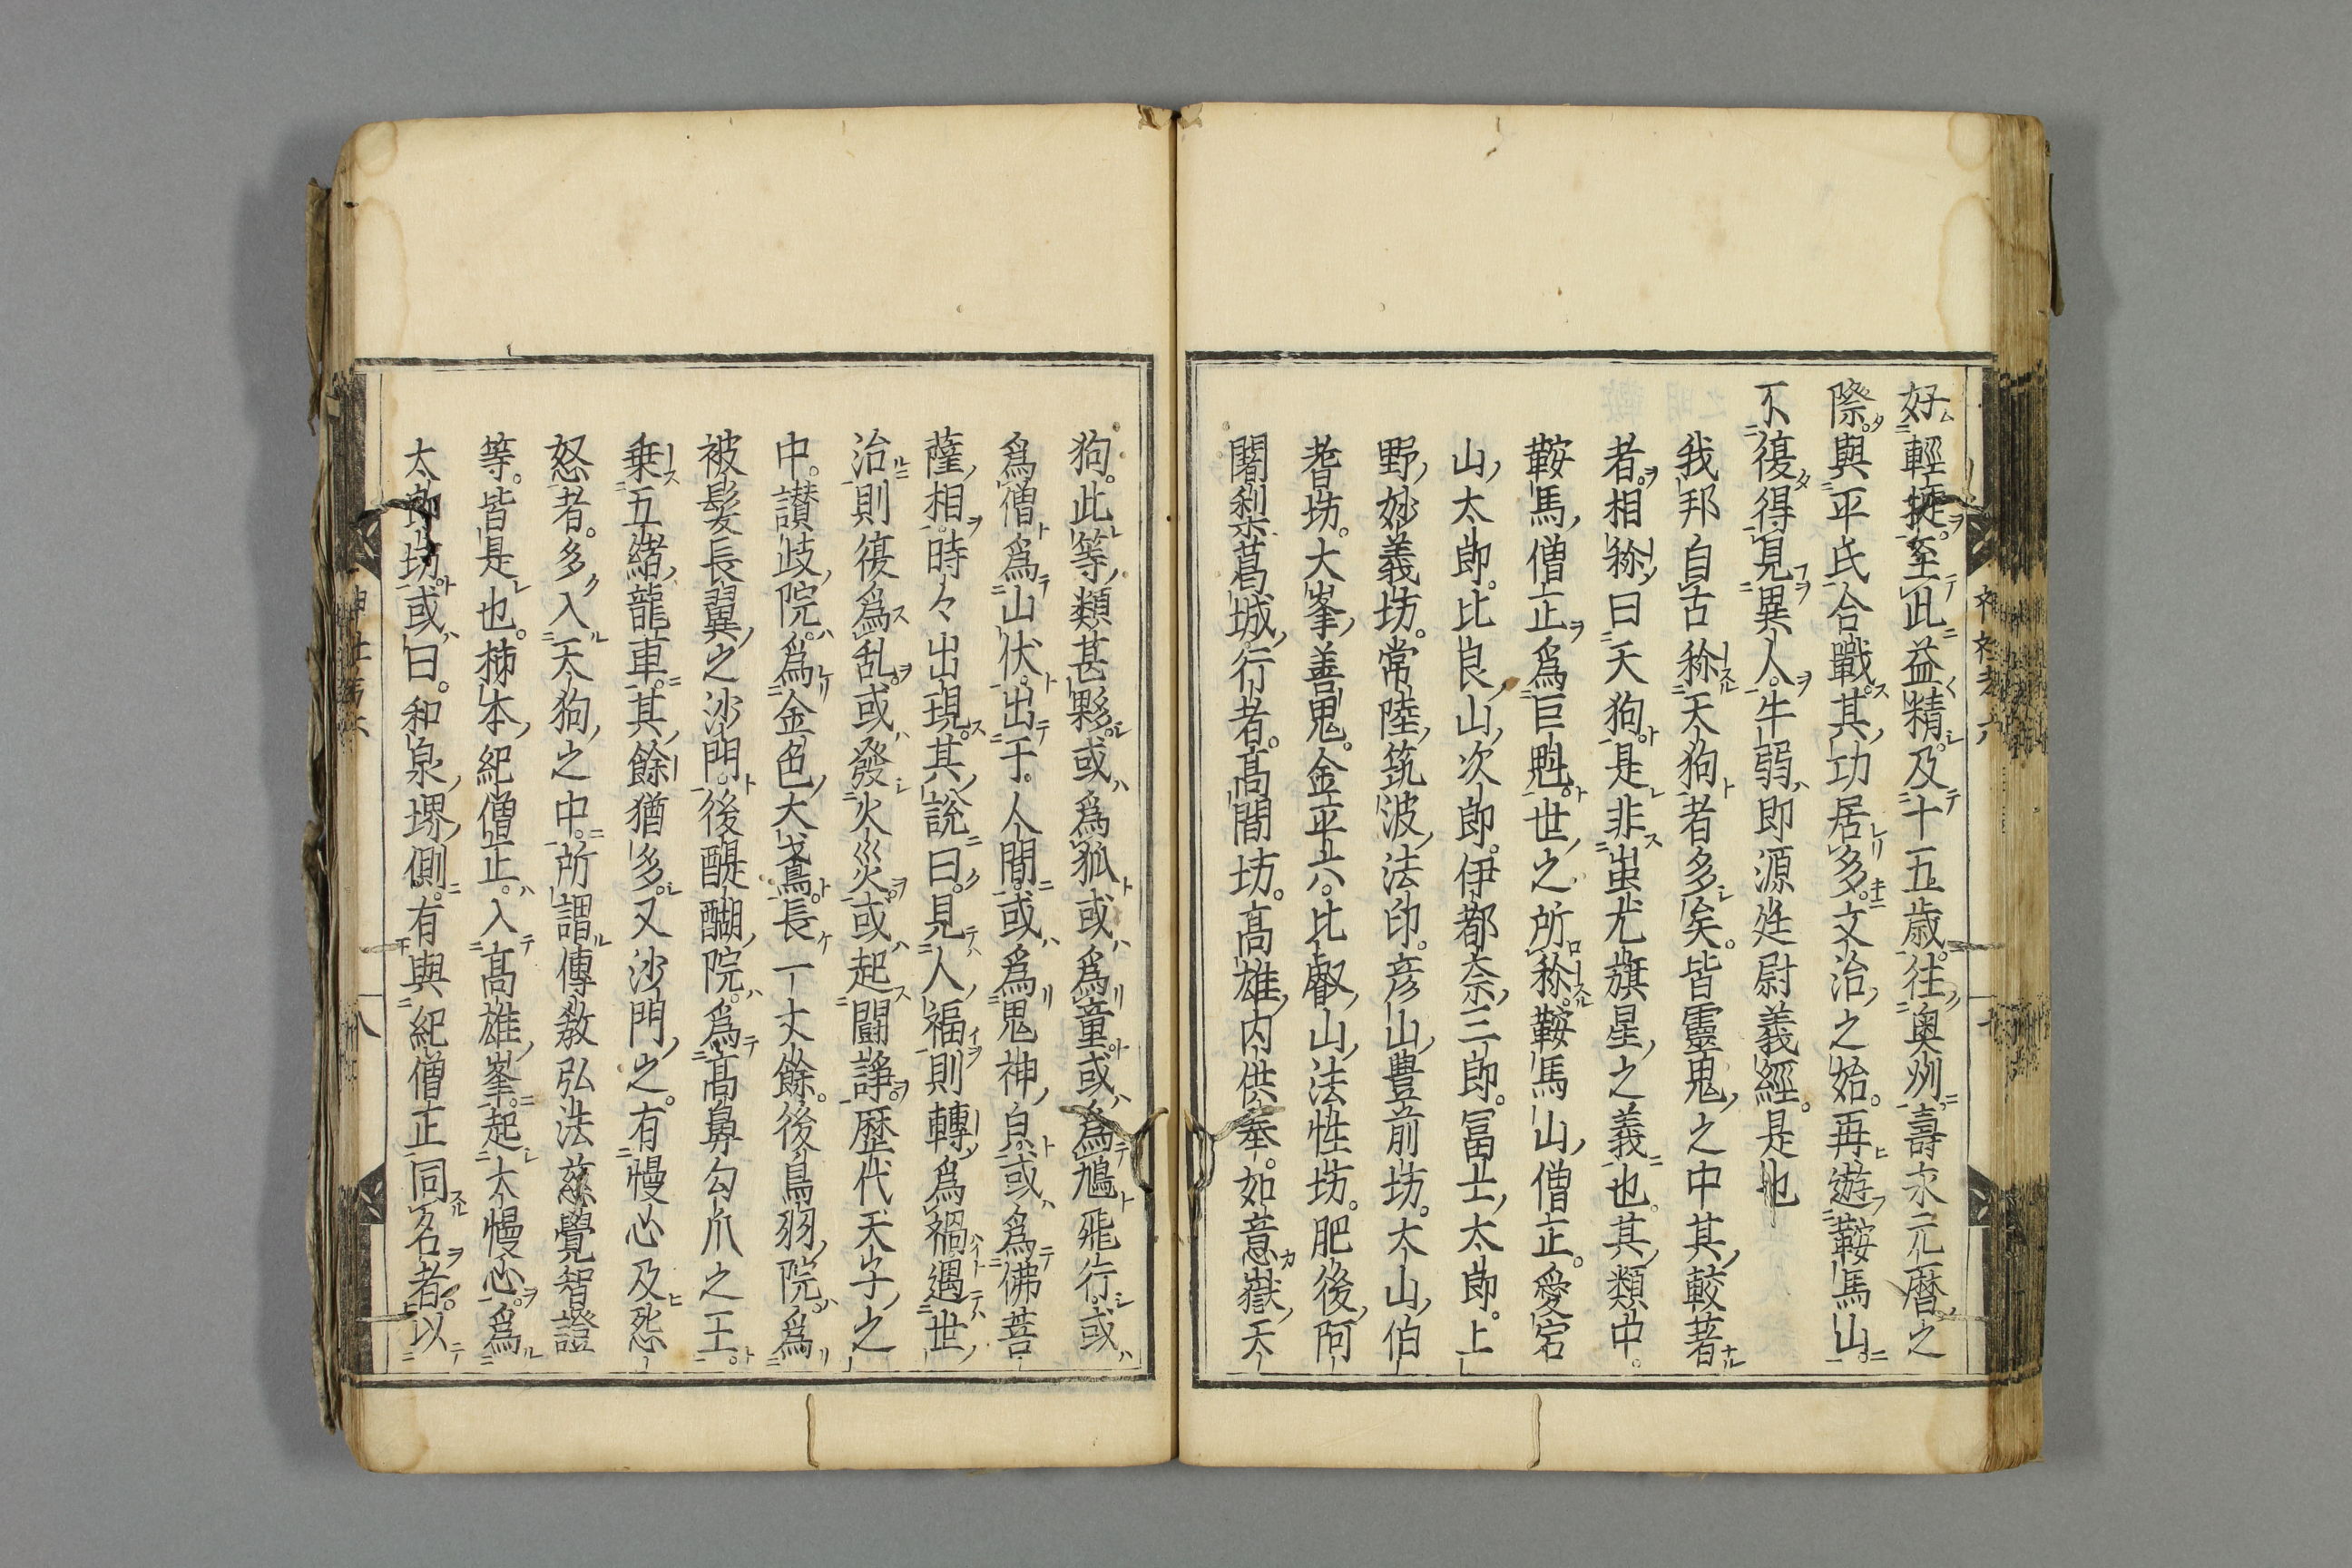 好輕捷。至此益精。及十五歳。往奥州。壽永元暦之
際。與平氏合戰。其功居多。文治之始。再遊鞍馬山。
不復得見異人。牛弱即源廷尉義經。是也
我邦自古称天狗者多矣。皆靈鬼之中其較著
者。相称曰天狗。是非蚩尤旗星之義也。其類中。
鞍馬僧正爲巨魁。世之所称。鞍馬山僧正。愛宕
山太郎。比良山次郎。伊都奈三郎。冨士太郎。上
野妙義坊。常陸筑波法印。彦山豊前坊。大山伯
耆坊。大峯善鬼。金平六。比叡山法性坊。肥後阿
闍梨。葛城行者。髙間坊。髙雄内供奉。如意嶽天
狗。此等類甚夥。或爲狐或爲童。或爲鳩飛行。或
爲僧爲山伏。出于人間。或爲鬼神貟。或爲佛菩
薩相。時々出現。其說曰。見人福則轉爲禍。遇世
治則復爲乱。或發火災。或起鬪諍。歴代天子之
中。讃岐院。爲金色大鳶。長一丈餘。後鳥羽院。爲
被髪長翼之沙門。後醍醐院。爲髙鼻勾爪之王。
乗五緒龍車。其餘猶多。又沙門之。有慢心及怨
怒者。多入天狗之中。所謂傳教弘法慈覺智證
等。皆是也。柿本紀僧正。入髙雄峯。起大慢心。爲
太郎坊。或曰。和泉堺側。有與紀僧正同名者。以